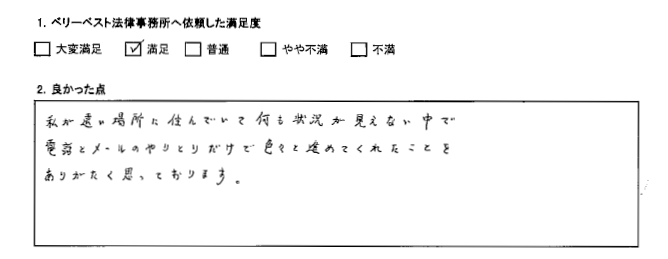 1. ベリーベスト法律事務所へ依頼した満足度
□ 大変満足 ☑ 満足 □ 普通 □ やや不満 □ 不満
2. 良かった点
私が遠い場所に住んでいて何も状況が見えない中で
電話とメールのやりとりだけで色々と進めてくれたことを
ありがたく思っております。